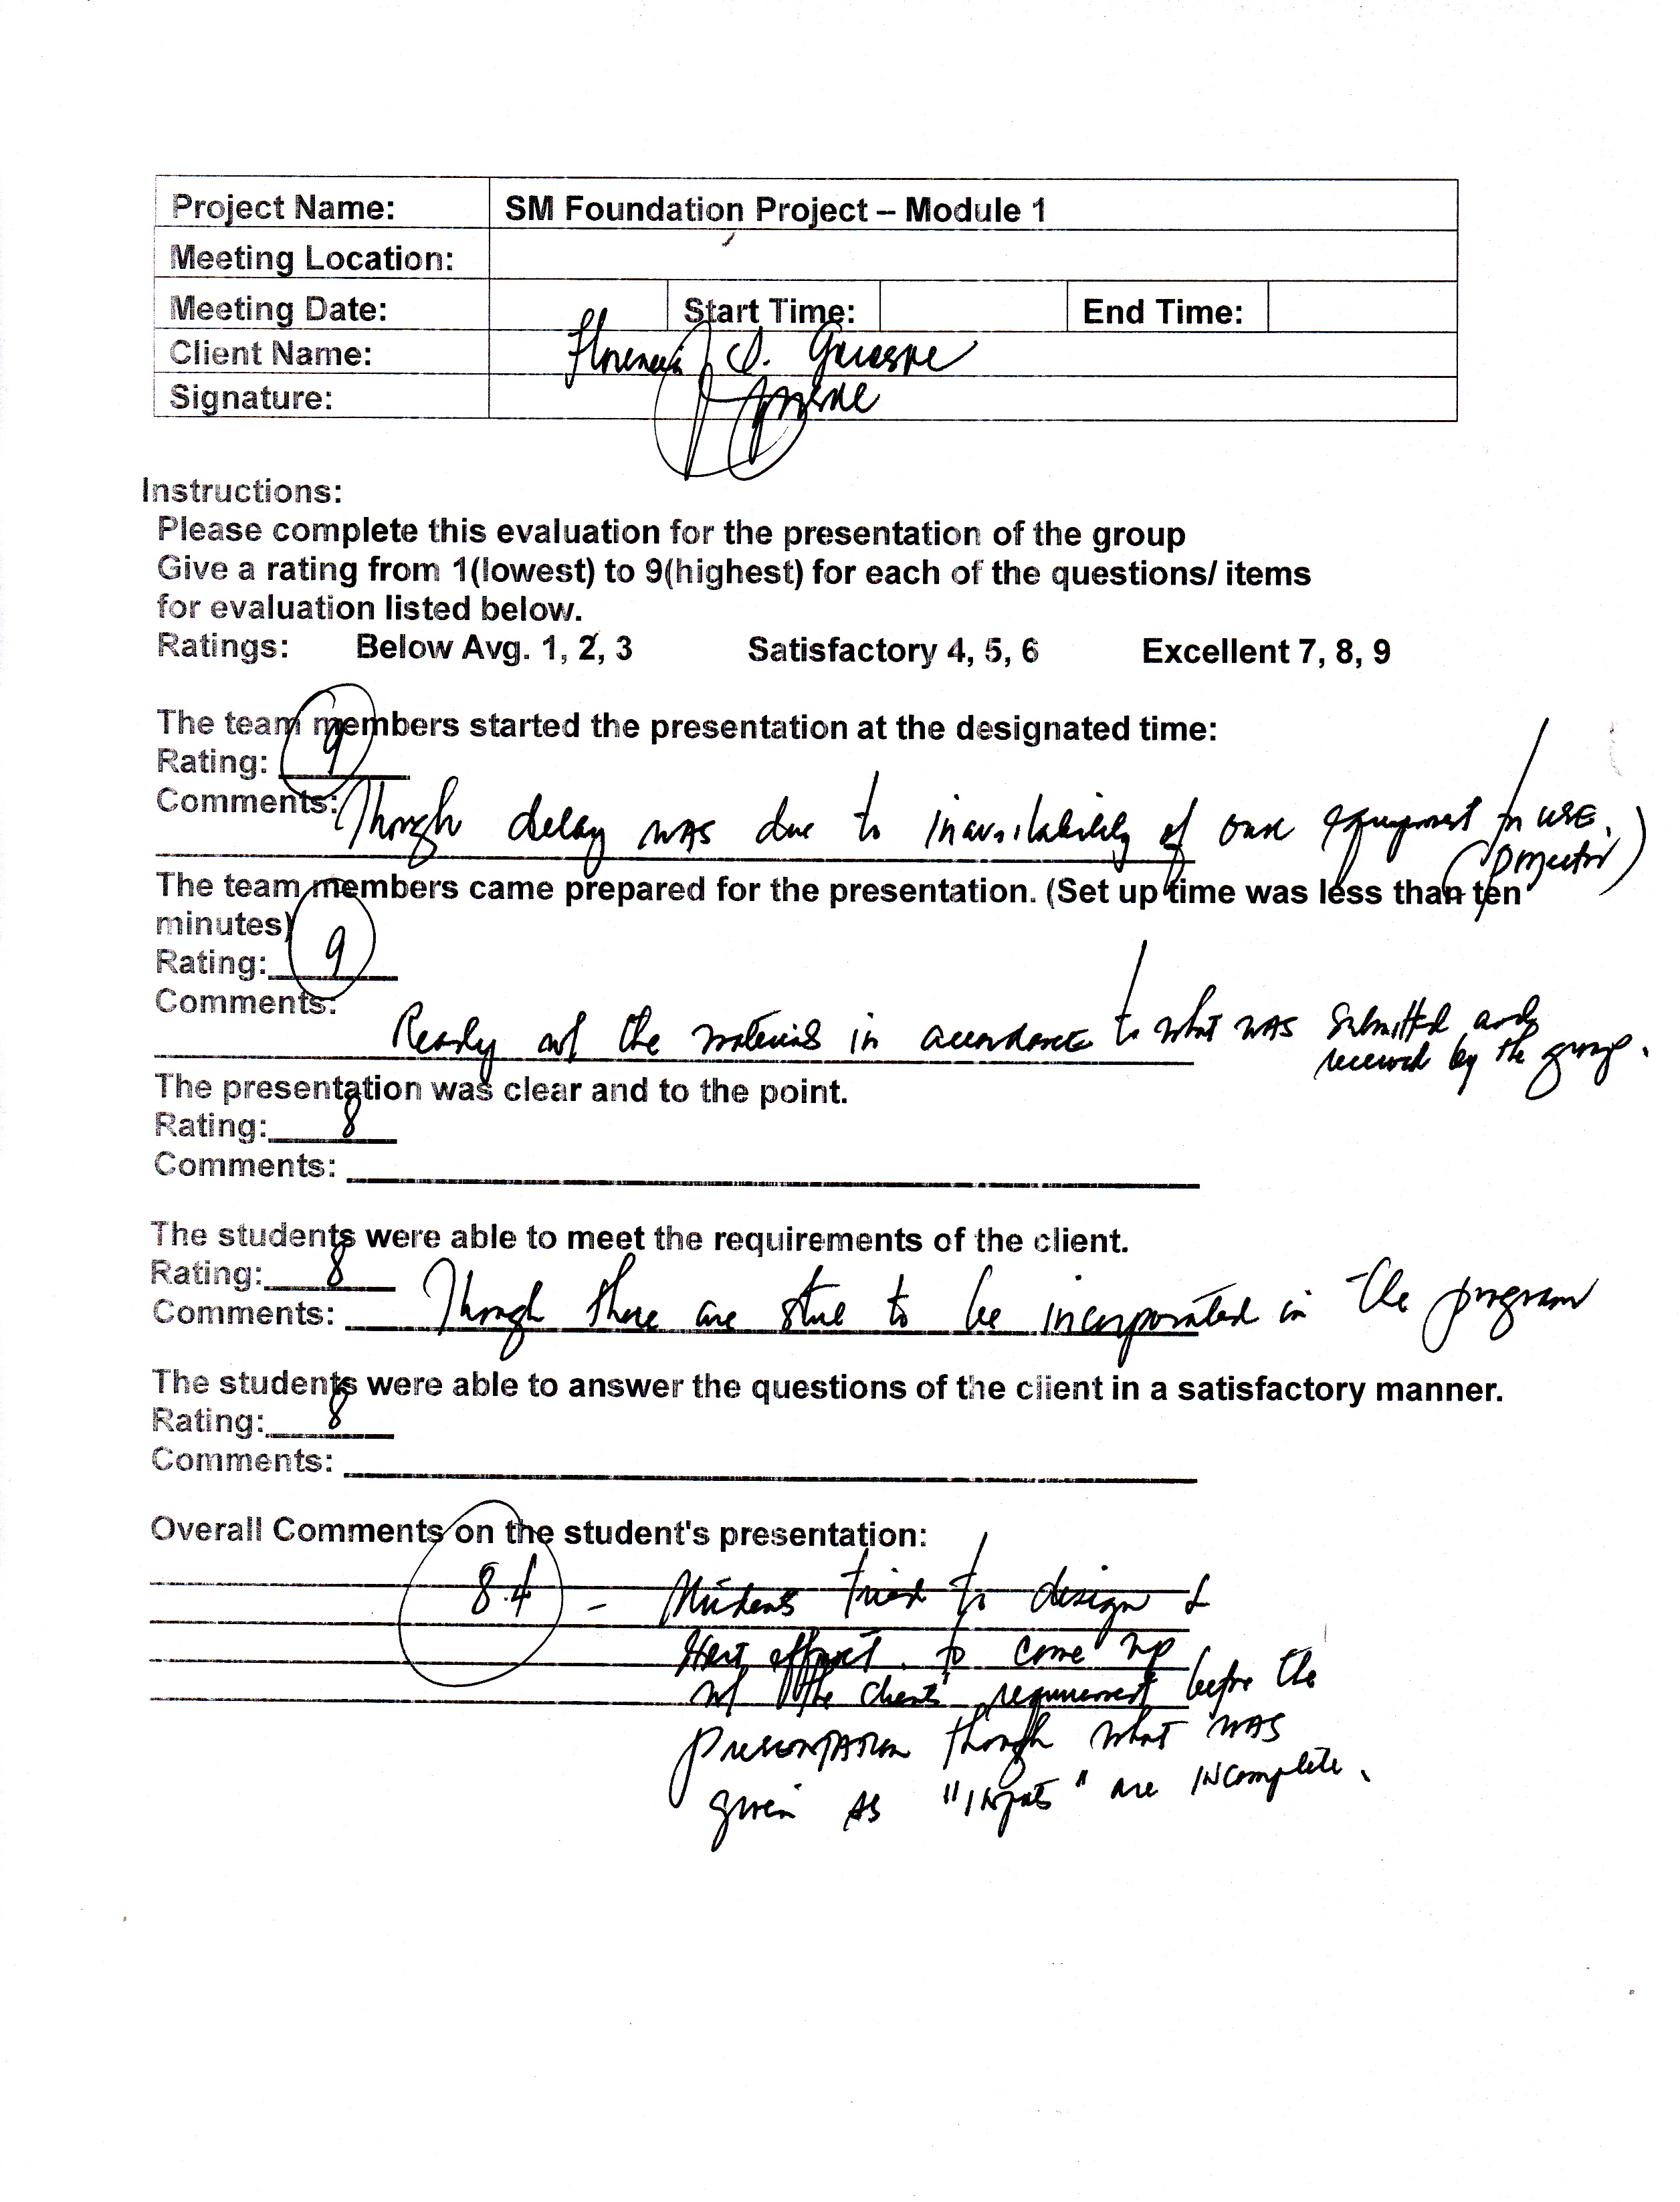 Project Name: SM Foundation Project – Module 1
Meeting Location:
Meeting Date: Start Time: End Time:
Client Name: D.
Signature:
Instructions:
Please complete this evaluation for the presentation of the group
Give a rating from 1(lowest) to 9(highest) for each of the questions/ items
for evaluation listed below.
Ratings: Below Avg. 1, 2, 3 Satisfactory 4, 5, 6 Excellent 7, 8, 9
The team members started the presentation at the designated time:
Rating: 9
Comments: Though delay was due to inavailability of our equipment to use.
(projector)
The team members came prepared for the presentation. (Set up time was less than ten
minutes)
Rating: 9
Comments:
Ready w/ the materials in accordance to what was submitted and
received by the group.
The presentation was clear and to the point.
Rating: 8
Comments:
The students were able to meet the requirements of the client.
Rating: 8
Comments: Though there are still to be incorporated in the program
The students were able to answer the questions of the client in a satisfactory manner.
Rating: 8
Comments:
Overall Comments on the student's presentation:
8.4 - Students tried to design &
effort to come up
w/ the clients' requirement before the
presentation though what was
given as "inputs" are incomplete.